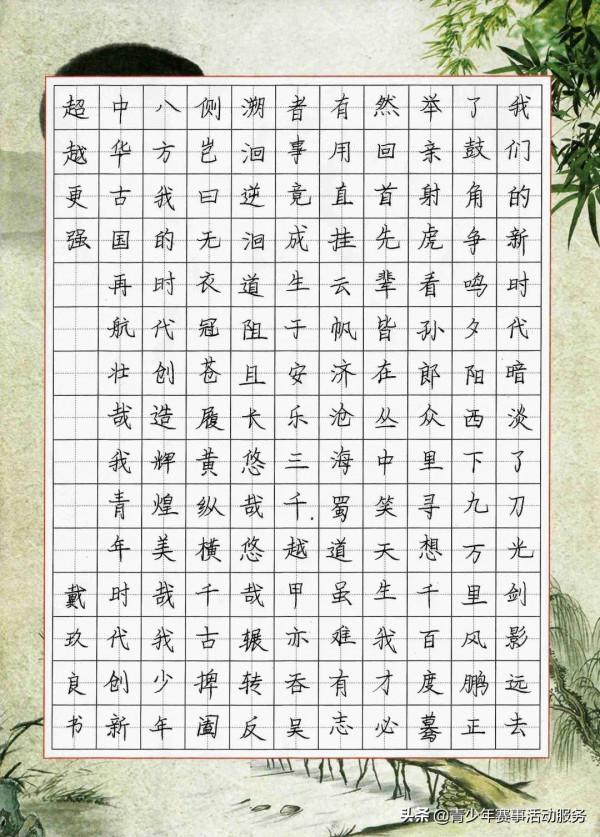 我们的新时代暗淡了刀光剑影远去
了鼓角争鸣夕阳西下九万里风鹏正
举亲射虎看孙郎众里寻想千百度蓦
然回首先辈皆在丛中笑天生我才必
有用直挂云帆济沧海蜀道虽难有志
者事竟成生于安乐三千越甲亦吞吴
溯洄逆洄道阻且长悠哉悠哉辗转反
侧岂曰无衣冠苍履黄纵横千古捭阖
八方我的时代创造辉煌美哉我少年
中华古国再航壮哉我青年时代创新
超越更强戴玖良书
头条@青少年赛事活动服务